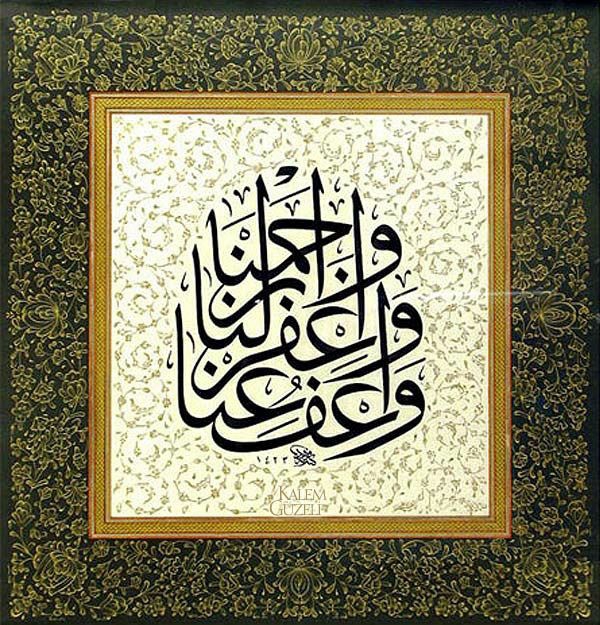 واعف عنا
واغفر لنا
وارحمنا
١٤٢٣
KALEM
GÜZELİ